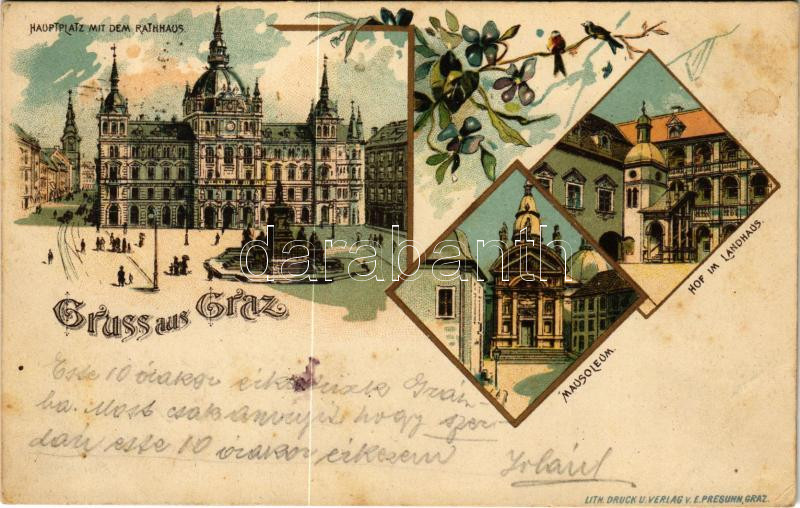 HAUPTPLATZ MIT DEM RATHHAUS.
HOF IM LANDHAUS.
MAUSOLEUM.
darabanth
Gruss aus Graz
Este 10 órakor érkeztünk Gráz-
ba. Most csak annyit hogy szer-
dán este 10 órakor érkezem
LITH. DRUCK U. VERLAG V. E. PRESUHN, GRAZ.